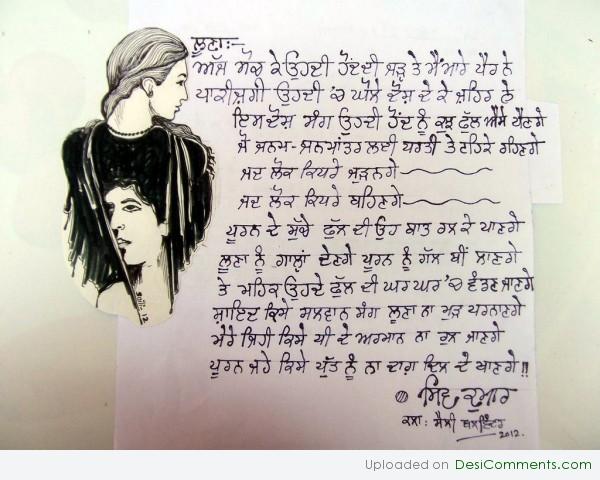 ਲੂਣਾ:-
ਅੱਜ ਸੋਚ ਕੇ ਉਹਦੀ ਹੋਂਦ ਦੀ ਜੜ੍ਹ ਤੇ ਮੈਂ ਮਾਰੇ ਪੈਰ ਨੇ
ਪਾਕੀਜ਼ਗੀ ਉਹਦੀ 'ਚ ਘੋਲੇ ਦੋਸ਼ ਦੇ ਕੇ ਜ਼ਹਿਰ ਨੇ
ਇਸ ਦੋਸ਼ ਸੰਗ ਉਹਦੀ ਹੋਂਦ ਨੂੰ ਕੁਝ ਫੁੱਲ ਐਸੇ ਪੈਣਗੇ
ਜੋ ਜਨਮ-ਜਨਮਾਂਤਰ ਲਈ ਧਰਤੀ ਤੇ ਟਹਿਕੇ ਰਹਿਣਗੇ
ਜਦ ਲੋਕ ਕਿਧਰੇ ਜੁੜਨਗੇ
ਜਦ ਲੋਕ ਕਿਧਰੇ ਬਹਿਣਗੇ
ਪੂਰਨ ਦੇ ਸੁੱਚੇ ਫੁੱਲ ਦੀ ਉਹ ਬਾਤ ਰਲ ਕੇ ਪਾਣਗੇ
ਲੂਣਾ ਨੂੰ ਗਾਲ੍ਹਾਂ ਦੇਣਗੇ ਪੂਰਨ ਨੂੰ ਗੱਲ ਥੀਂ ਲਾਣਗੇ
ਤੇ ਮਹਿਕ ਉਹਦੇ ਫੁੱਲ ਦੀ ਘਰ ਘਰ 'ਚ ਵੰਡਣ ਜਾਣਗੇ
ਸ਼ਾਇਦ ਕਿਸੇ ਸਲਵਾਨ ਸੰਗ ਲੂਣਾ ਨਾ ਮੁੜ ਪਰਨਾਣਗੇ
ਮੇਰੇ ਜਿਹੀ ਕਿਸੇ ਧੀ ਦੇ ਅਰਮਾਨ ਨਾ ਰੁਲ ਜਾਣਗੇ
ਪੂਰਨ ਜਹੇ ਕਿਸੇ ਪੁੱਤ ਨੂੰ ਨਾ ਦਾਗ਼ ਦਿਲ ਦੇ ਖਾਣਗੇ !!
ਸ਼ਿਵ ਕੁਮਾਰ
ਕਲਾ: ਸੈਲੀ ਬਲਜਿੰਦਰ
2012.
Uploaded on DesiComments.com